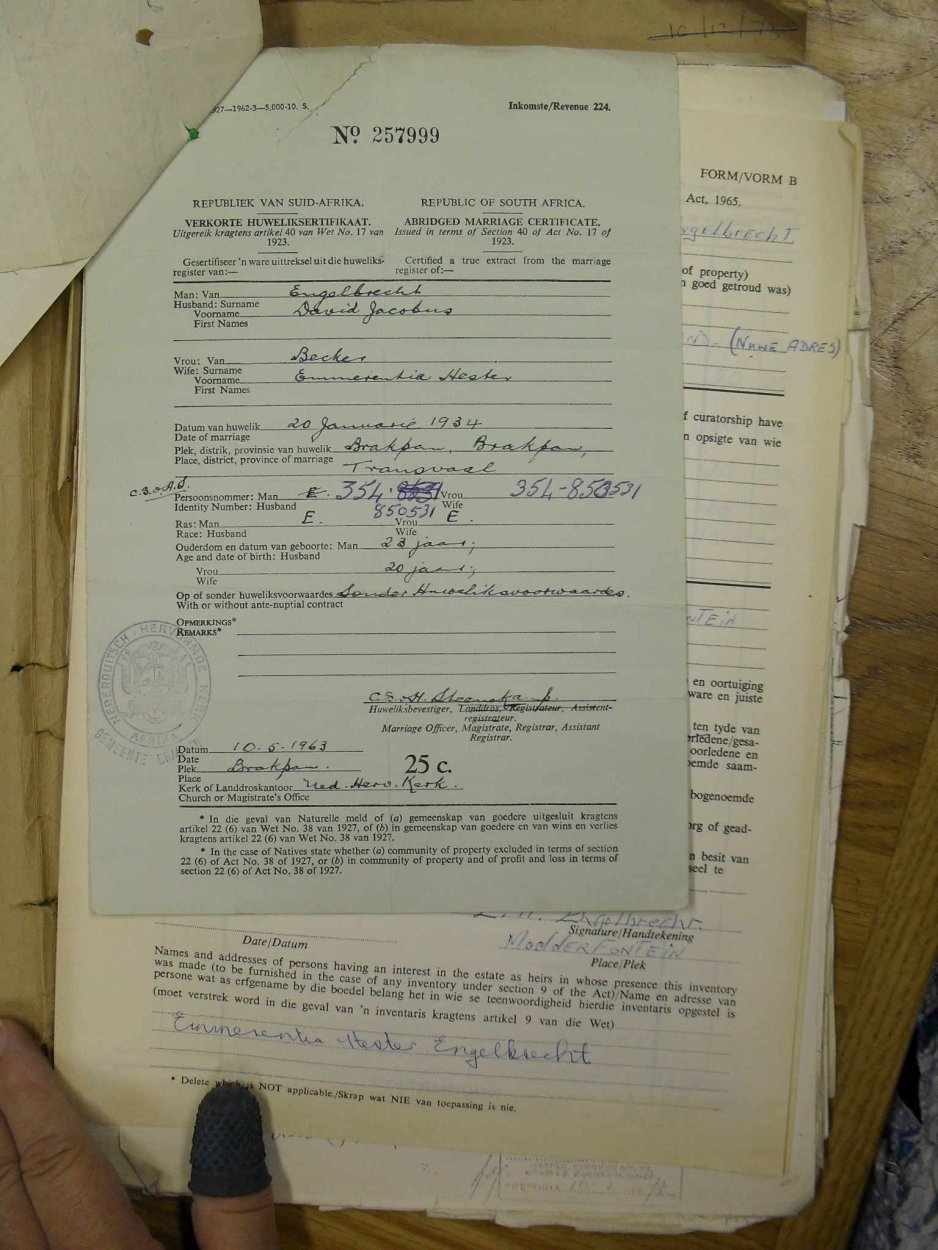 10/12/73
27—1962-3—5,000-10. S.
Inkomste/Revenue 224.
Nº 257999
REPUBLIEK VAN SUID-AFRIKA.
REPUBLIC OF SOUTH AFRICA.
VERKORTE HUWELIKSERTIFIKAAT.
ABRIDGED MARRIAGE CERTIFICATE.
Uitgereik kragtens artikel 40 van Wet No. 17 van 1923.
Issued in terms of Section 40 of Act No. 17 of 1923.
Gesertifiseer 'n ware uittreksel uit die huweliks-
register van:—
Certified a true extract from the marriage
register of:—
Man: Van Engelbrecht
Husband: Surname
Voorname David Jacobus
First Names
Vrou: Van Becker
Wife: Surname
Voorname Emmerentia Hester
First Names
Datum van huwelik 20 Januarie 1934
Date of marriage
Plek, distrik, provinsie van huwelik Brakpan, Brakpan,
Place, district, province of marriage Transvaal
Persoonsnommer: Man E. 354· Vrou 354-850531
Identity Number: Husband 850531 Wife
Ras: Man E. Vrou E.
Race: Husband Wife
Ouderdom en datum van geboorte: Man 23 jaar;
Age and date of birth: Husband
Vrou 20 jaar;
Wife
Op of sonder huweliksvoorwaardes Sonder Huweliksvoorwaardes.
With or without ante-nuptial contract
OPMERKINGS*
REMARKS*
NEDERDUITSCH HERVORMDE KERK
AFRIKA
GEMEENTE
Huweliksbevestiger, Landdros, Registrateur, Assistent-
registrateur.
Marriage Officer, Magistrate, Registrar, Assistant
Registrar.
Datum 10.5.1963
Date
Plek Brakpan. 25 c.
Place
Kerk of Landdroskantoor Ned. Herv. Kerk.
Church or Magistrate's Office
* In die geval van Naturelle meld of (a) gemeenskap van goedere uitgesluit kragtens
artikel 22 (6) van Wet No. 38 van 1927, of (b) in gemeenskap van goedere en van wins en verlies
kragtens artikel 22 (6) van Wet No. 38 van 1927.
* In the case of Natives state whether (a) community of property excluded in terms of section
22 (6) of Act No. 38 of 1927, or (b) in community of property and of profit and loss in terms of
section 22 (6) of Act No. 38 of 1927.
FORM/VORM B
Act, 1965.
ngelbrecht
of property)
goed getroud was)
(NUWE ADRES)
of curatorship have
opsigte van wie
en oortuiging
ware en juiste
ten tyde van
rledene/gesa-
oorledene en
emde saam-
bogenoemde
org of gead-
n besit van
seel te
E. H. Engelbrecht.
Signature/Handtekening
MODDERFONTEIN
Date/Datum
Place/Plek
Names and addresses of persons having an interest in the estate as heirs in whose presence this inventory
was made (to be furnished in the case of any inventory under section 9 of the Act)/Name en adresse van
persone wat as erfgename by die boedel belang het in wie se teenwoordigheid hierdie inventaris opgestel is
(moet verstrek word in die geval van 'n inventaris kragtens artikel 9 van die Wet)
Emmerentia Hester Engelbrecht
* Delete which is NOT applicable./Skrap wat NIE van toepassing is nie.